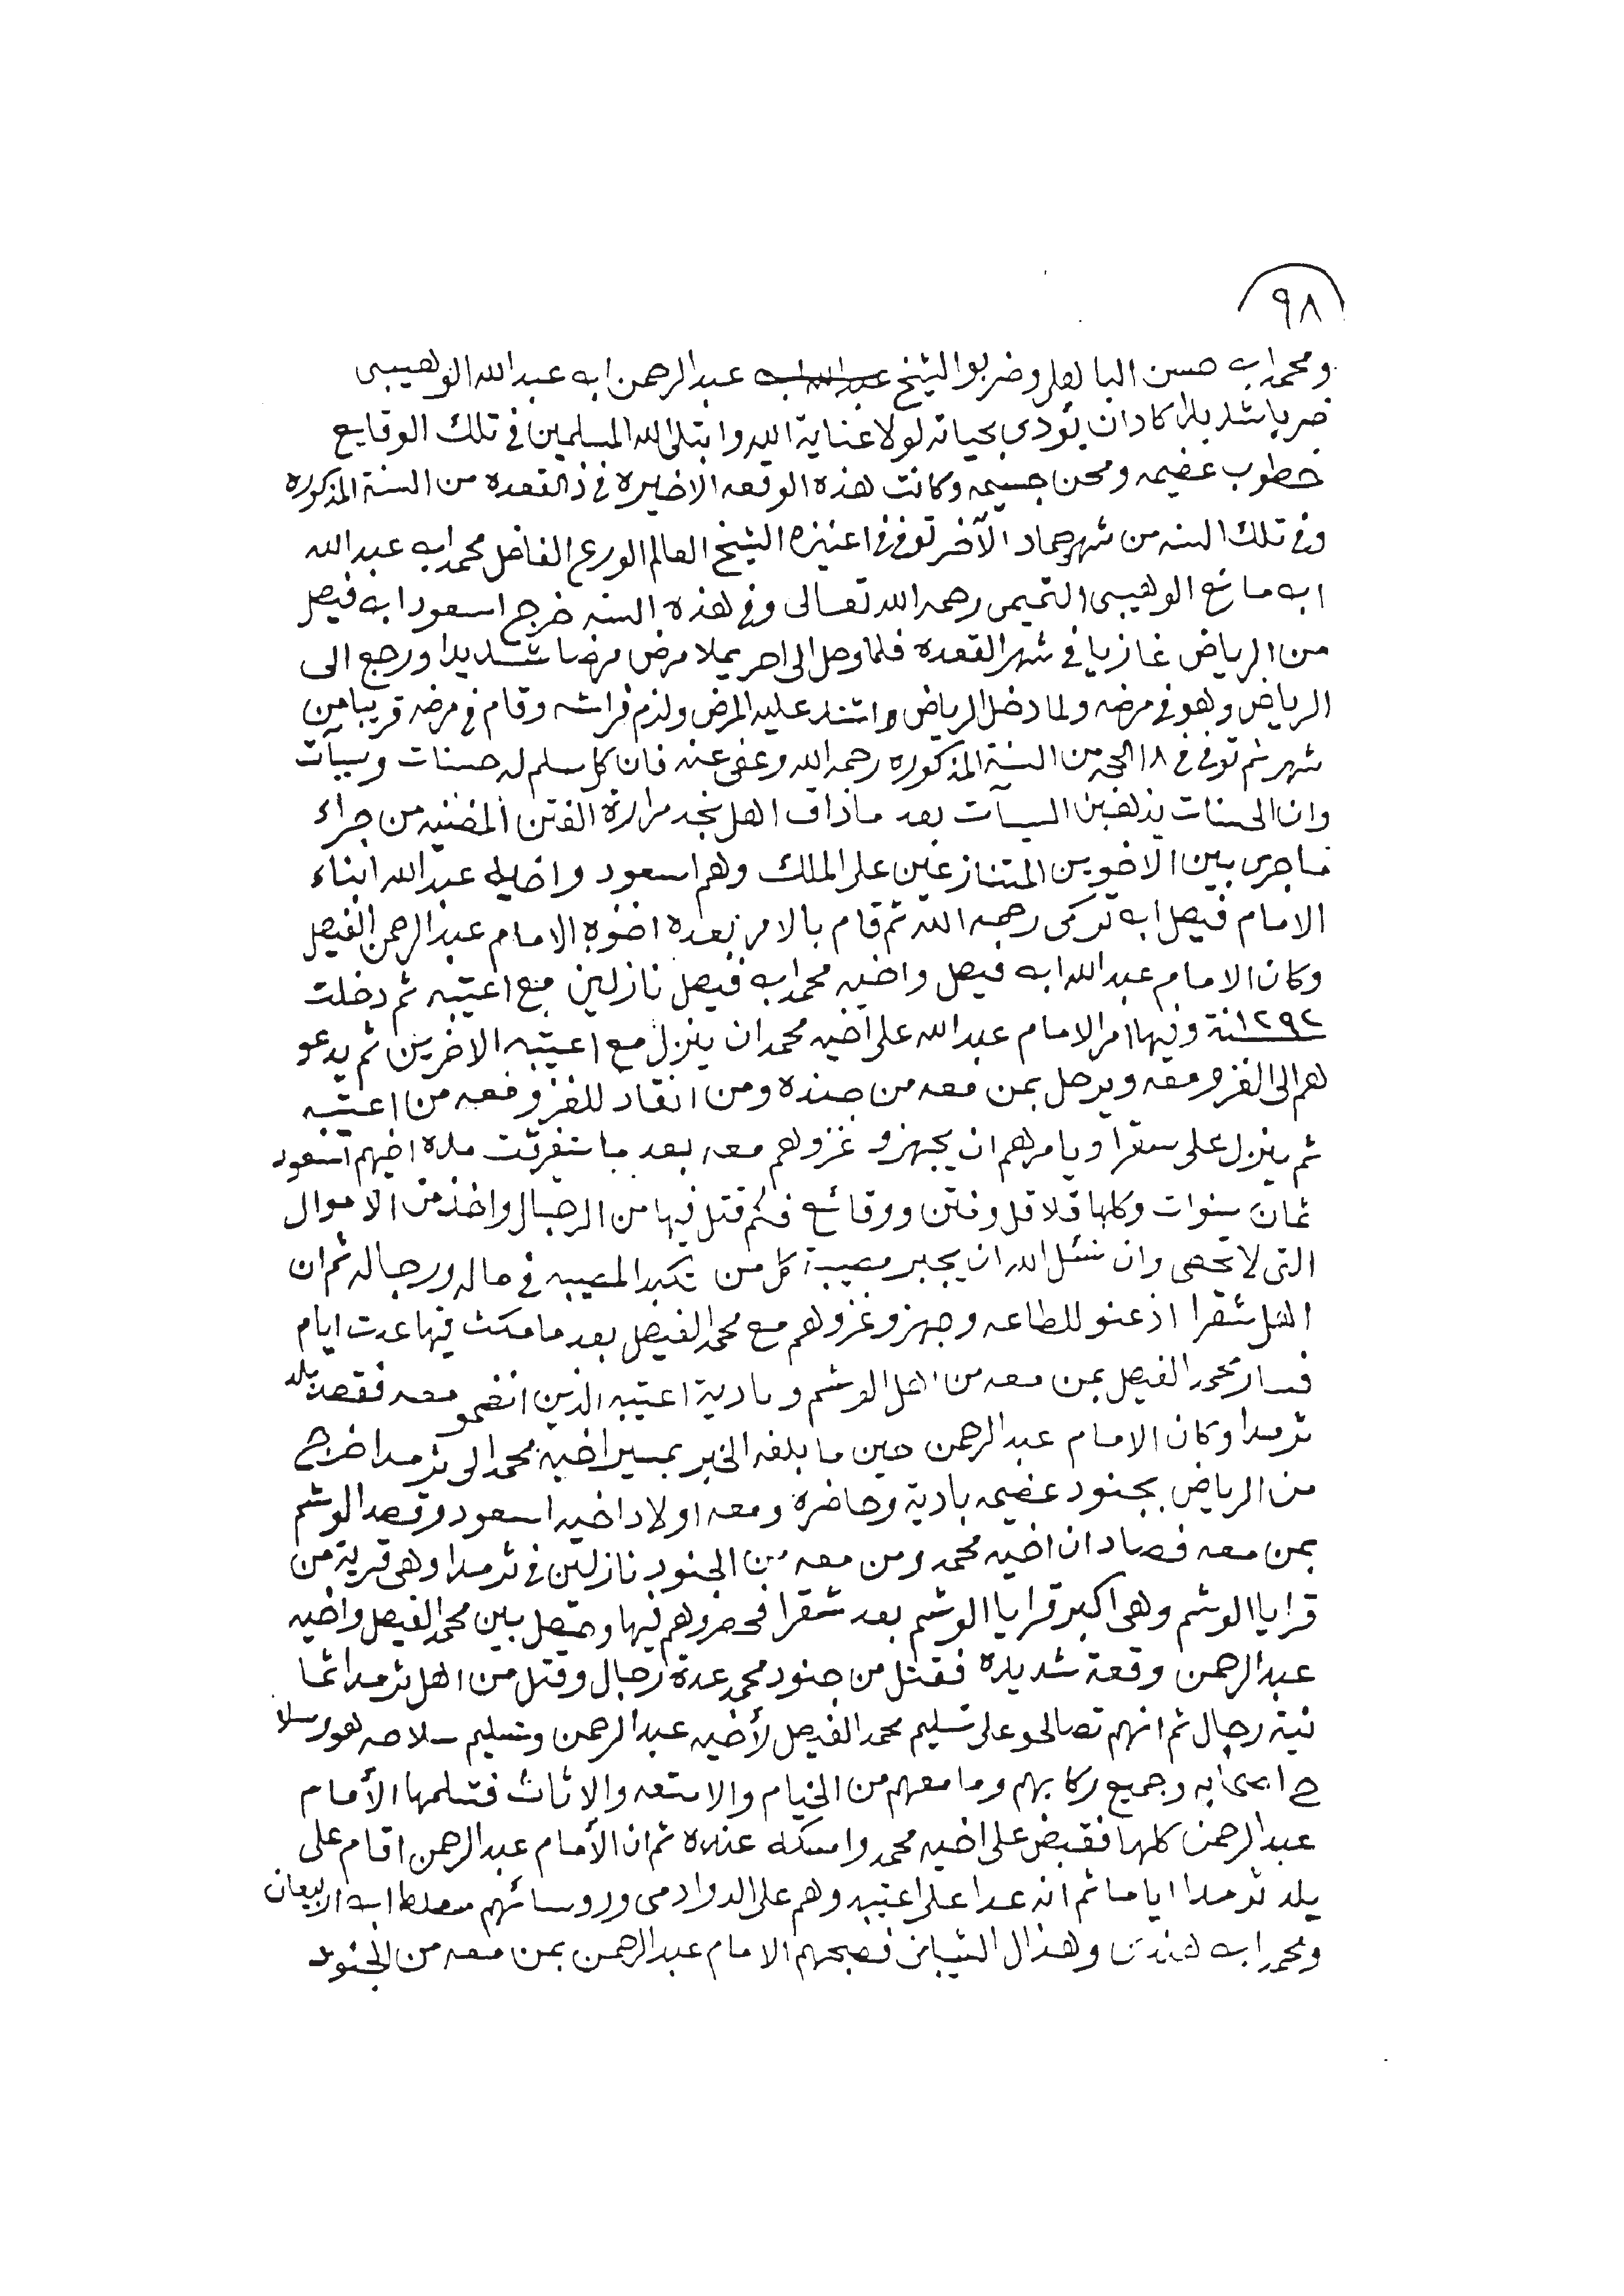 ٩٨
ومحمد ابن حسن الباهلي وضربوا الشيخ عبدالله ابن عبدالرحمن ابن عبدالله الوهيبي
ضربا شديدا كاد ان يؤدي بحياته لولا عناية الله وابتلى الله المسلمين في تلك الوقايع
خطوب عضيمه ومحن جسيمه وكانت هذه الوقعه الاخيره في ذالقعده من السنة المذكوره
وفي تلك السنه من شهر جماد الآخر توفي في اعنيزه الشيخ العالم الورع الفاضل محمد ابن عبدالله
ابن مانع الوهيبي التميمي رحمه الله تعالى وفي هذه السنه خرج اسعود ابن فيصل
من الرياض غازيا في شهر القعده فلما وصل الى احريملا مرض مرضا شديدا ورجع الى
الرياض وهو في مرضه ولما دخل الرياض واشتد عليه المرض ولزم فراشه وقام في مرضه قريبا من
شهر ثم توفي في ١٨ الحجه من السنة المذكوره رحمه الله وعفى عنه فان كل مسلم له حسنات وسيآت
وان الحسنات يذهبن السيآت بعد ماذاق اهل نجد مرارة الفتن المضنيه من جراء
ماجرى بين الاخوين المتنازعين على الملك وهم اسعود واخيه عبدالله ابناء
الامام فيصل ابن تركي رحمه الله ثم قام بالامر بعده اخوه الامام عبدالرحمن الفيصل
وكان الامام عبدالله ابن فيصل واخيه محمد ابن فيصل نازلين مع اعتيبه ثم دخلت
سنة ١٢٩٢ وفيها امر الامام عبدالله على اخيه محمد ان ينزل مع اعتيبه الاخرين ثم يدعو
هم الى الغزو معه ويرحل بمن معه من جنده ومن انقاد للغزو معه من اعتيبه
ثم ينزل على شقرا ويامرهم ان يجهزو غزوهم معه بعد ما استغرقت مدة اخيهم اسعود
ثمان سنوات وكلها قلاقل وفتن ووقائع فكم قتل فيها من الرجال واخذ من الاموال
التي لا تحصى وان نسئل الله ان يجبر مصيبة كل من تكبد المصيبه في ماله ورجاله ثم ان
اهل شقرا اذعنو للطاعه وجهزو غزوهم مع محمد الفيصل بعد مامكث فيها عدت ايام
فسار محمد الفيصل بمن معه من اهل الوشم وبادية اعتيبه الذين انضمو معه فقصد بلد
ثرمدا وكان الامام عبدالرحمن حين ما بلغه الخبر بمسير اخيه محمد الى ثرمدا خرج
من الرياض بجنود عضيمه بادية وحاضرة ومعه اولاد اخيه اسعود وقصد الوشم
بمن معه فصادان اخيه محمد ومن معه من الجنود نازلين في ثرمدا وهي قرية من
قرايا الوشم وهي اكبر قرايا الوشم بعد شقرا فحصروهم فيها وحصل بين محمد الفيصل واخيه
عبدالرحمن وقعة شديده فقتل من جنود محمد عدة رجال وقتل من اهل ثرمدا ثما
نية رجال ثم انهم تصالحو على تسليم محمد الفيصل لأخيه عبدالرحمن وتسليم سلاحه هو وسلا
ح اصحابه وجميع ركابهم وما معهم من الخيام والامتعه والاثاث فتسلمها الأمام
عبدالرحمن كلها فقبض على اخيه محمد وامسكه عنده ثم ان الأمام عبدالرحمن اقام على
بلد ثرمدا اياما ثم انه عدا على اعتيبه وهم على الدوادمي وروسائهم مصلط ابن اربيعان
ومحمد ابن هندي وهذال الشيباني فصبحهم الامام عبدالرحمن بمن معه من الجنود